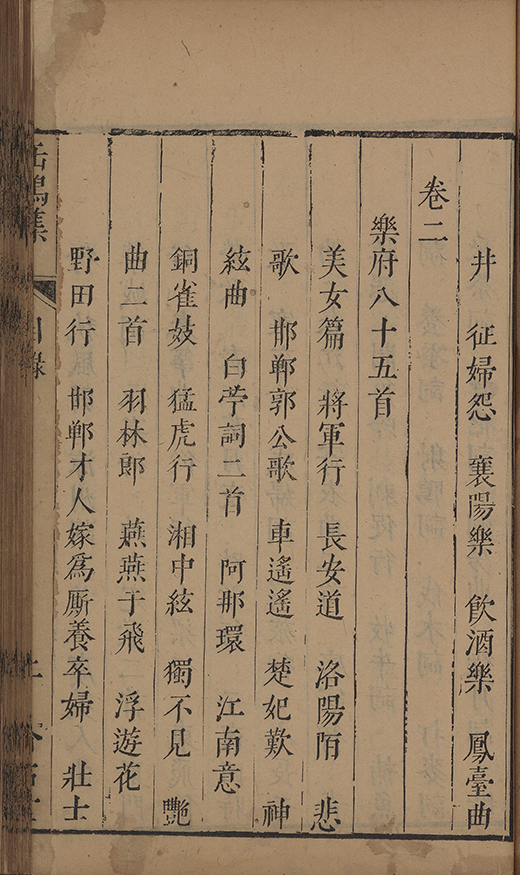 井　征婦怨　襄陽樂　飲酒樂　鳳臺曲
卷二
樂府八十五首
美女篇　將軍行　長安道　洛陽陌　悲
歌　邯鄲郭公歌　車遙遙　楚妃歎　神
絃曲　白苧詞二首　阿那環　江南意
銅雀妓　猛虎行　湘中絃　獨不見　艷
曲二首　羽林郎　燕燕于飛　浮遊花
野田行　邯鄲才人嫁爲厮養卒婦　壯士
缶鳴集　目錄